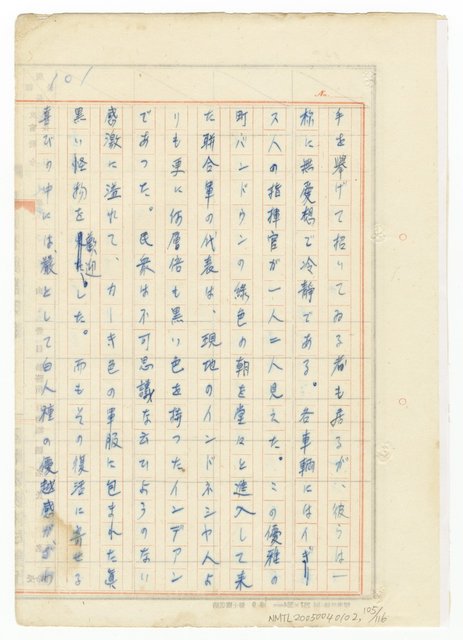 101
No.
手を擧げて招いてゐる者も居るが、彼らは一
様に無愛想で冷静である。各車輌にはイギリ
ス人の指揮官が一人二人見えた。この優雅の
町バンドウンの緑色の朝を堂々と進入して来
た聯合軍の代表は、現地のインドネシヤ人よ
りも更に何層倍も黒い色を持つたインデアン
であつた。民衆は不可思議な云ひようのない
感激に溢れて、カーキ色の軍服に包まれた眞
黒い怪物を歓迎した。而もその復活に寄せる
喜びの中には、厳として白人種の優越感がざわ
NMTL20050040102, 105/116